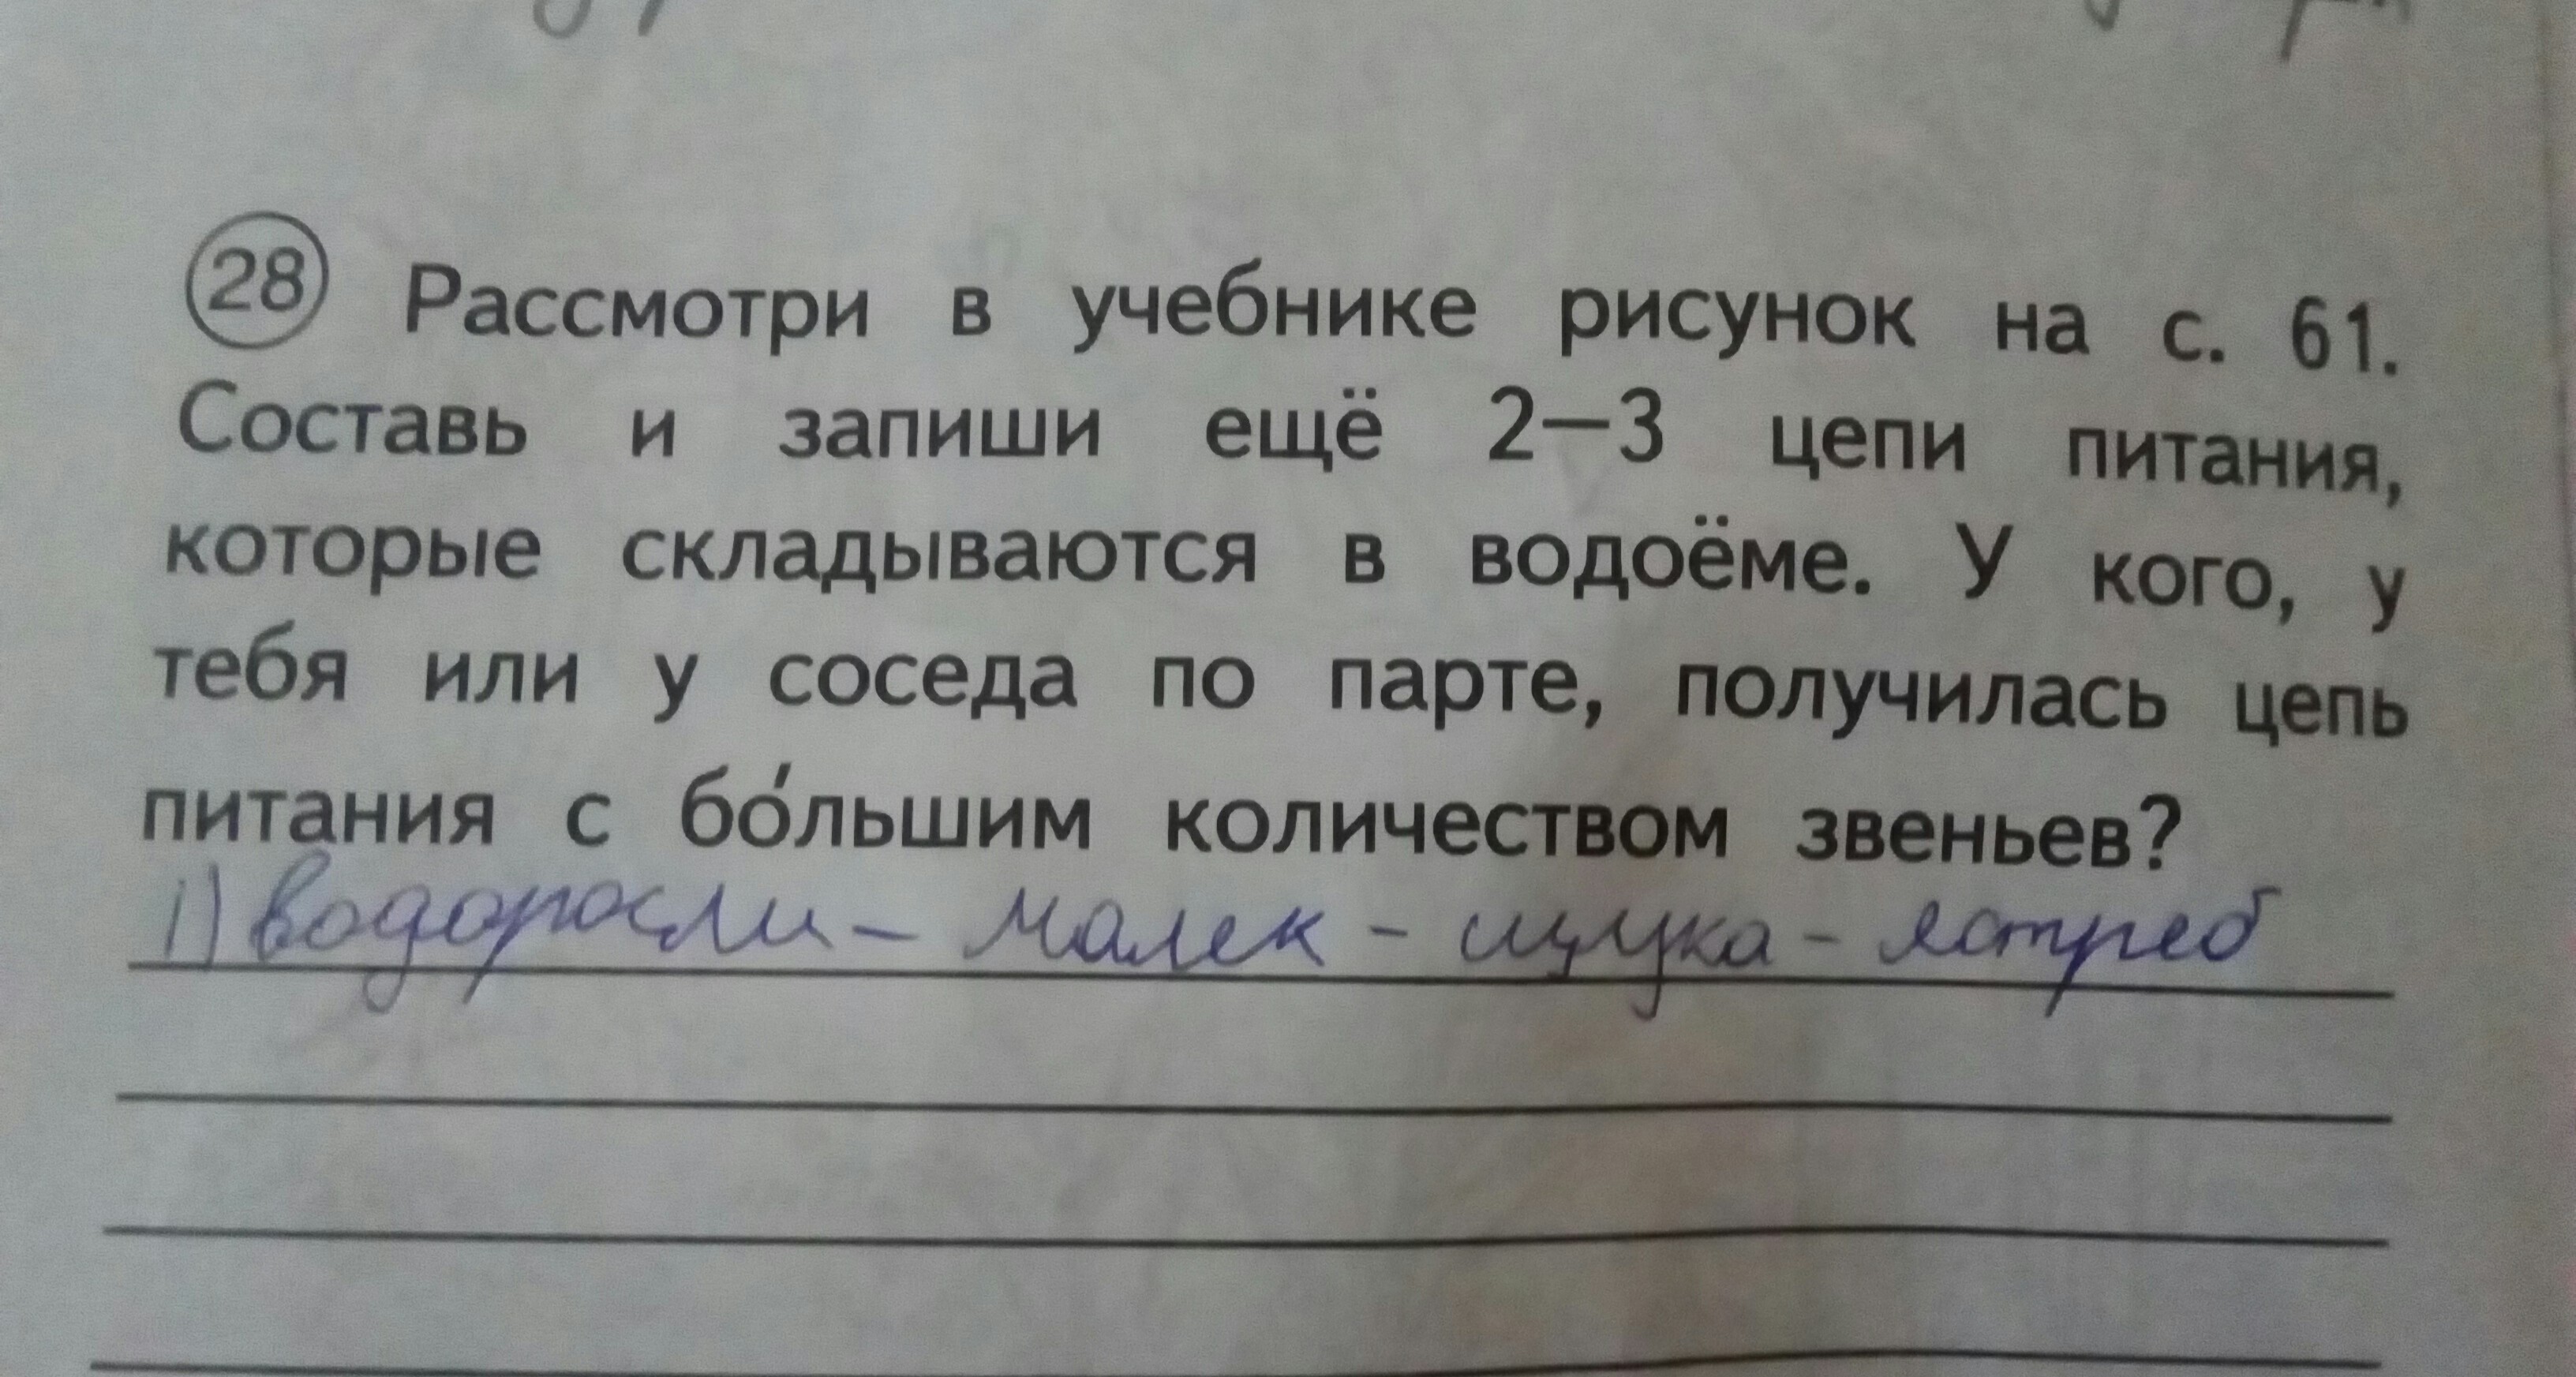 28 Рассмотри в учебнике рисунок на с. 61.
Составь и запиши ещё 2—3 цепи питания,
которые складываются в водоёме. У кого, у
тебя или у соседа по парте, получилась цепь
питания с бо́льшим количеством звеньев?
1) водоросли - малек - щука - ястреб